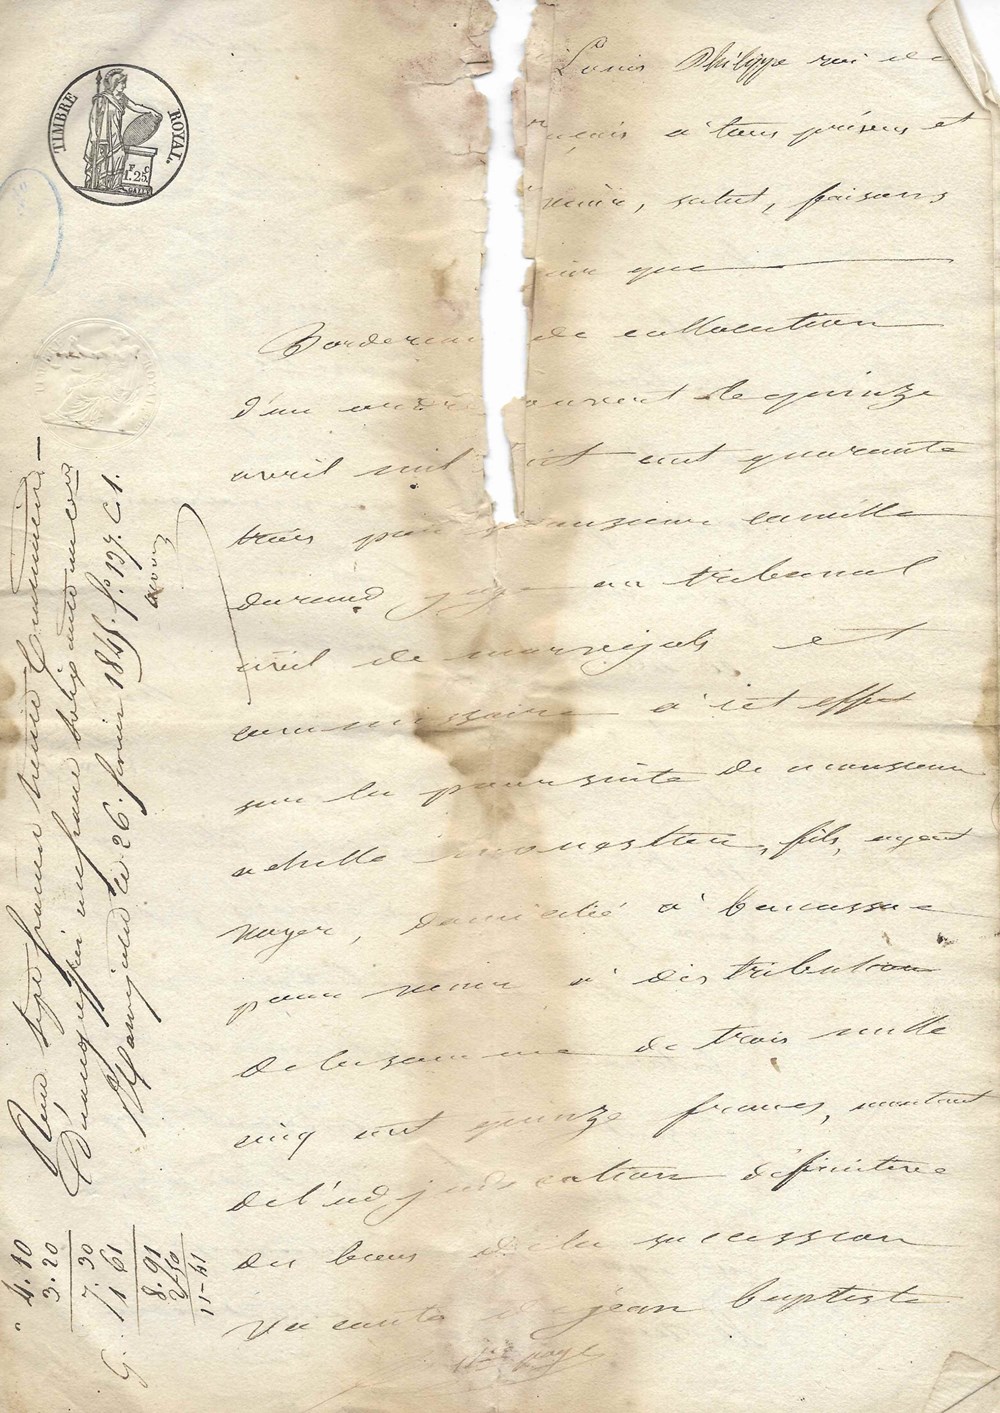 TIMBRE ROYAL.
F C
1.25
Louis Philippe roi de
à tous présens et
venir, salut, faisons
que
Bordereau de collocation
d'un ordre ouvert le quinze
avril mil huit cent quarante
trois par monsieur camille
durand juge au tribunal
civil de marvejols et
commissaire à cet effet
sur la poursuite de monsieur
achille monestier, fils, avocat
noyer, domicilié à
pour venir à distribution
de la somme de trois mille
cinq cent quinze francs, montant
de l'adjudication définitive
des biens de la succession
vacante de jean baptiste
1ere page
Reçu sept francs trente centimes
Décime un franc
Marvejols le 26. février 1845. f.o 137. C. 1.
4. 10
3. 20
7. 30
1 61
8. 91
2 50
11-41